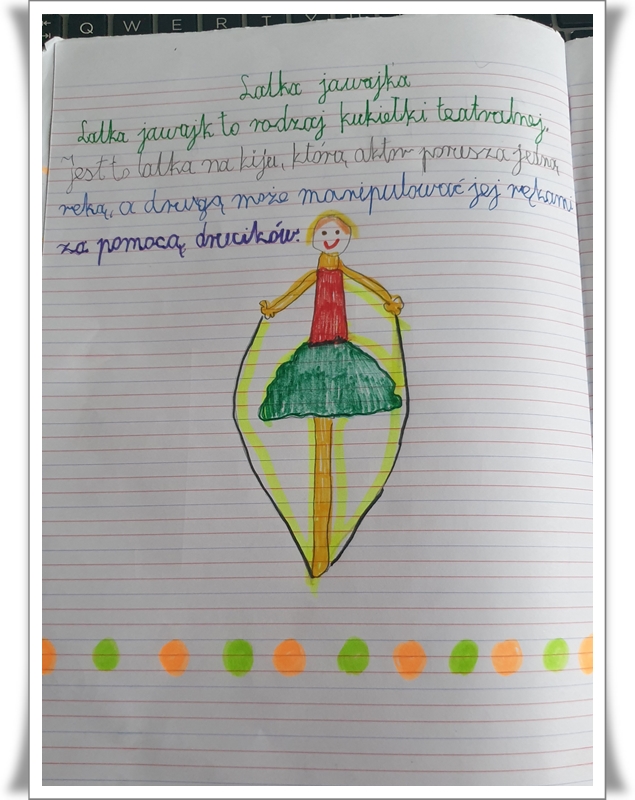 Q W E R T Y
Lalka jawajka
Lalka jawajk to rodzaj kukiełki teatralnej.
Jest to lalka na kiju, którą aktor porusza jedną
ręką, a drugą może manipulować jej rękami
za pomocą drucików.